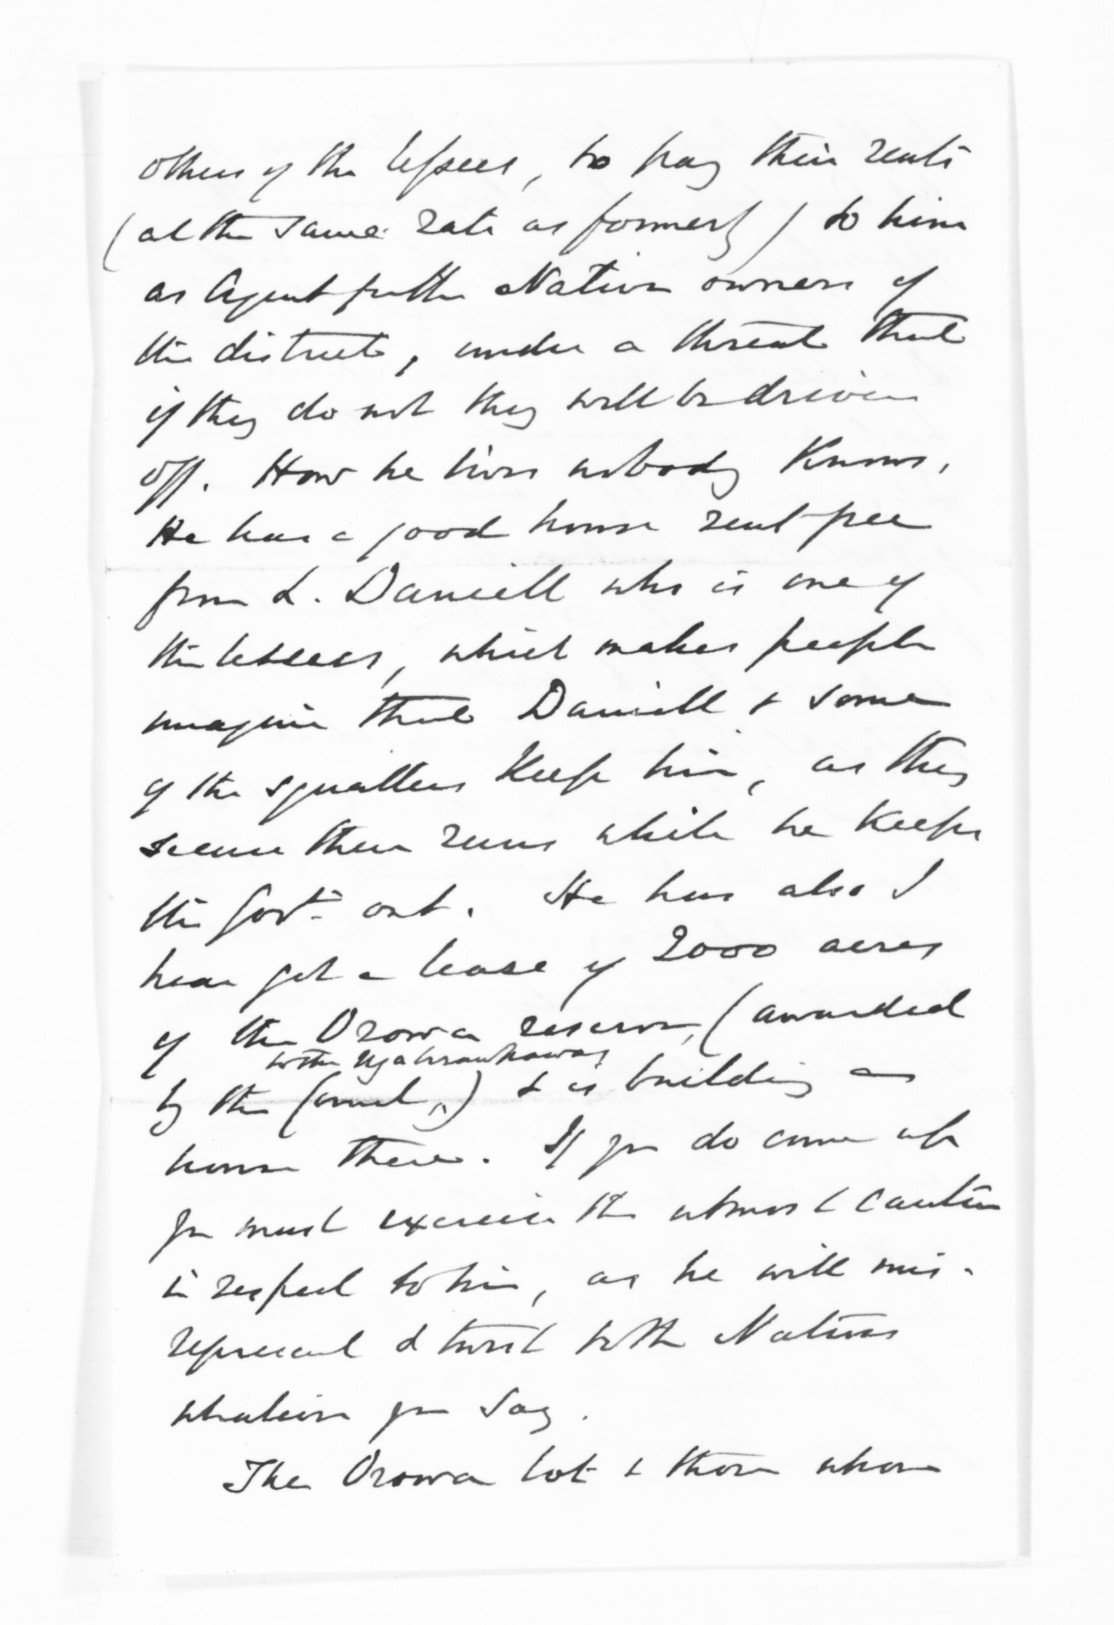 others of the lessees, to pay their rents
(at the same rate as formerly) to him
as Agent for the Native owners of
the district, under a threat that
if they do not they will be driven
off. How he lives nobody knows.
He has a good house rent free
from L. Daniell who is one of
the lessees, which makes people
imagine that Daniell & some
of the squatters keep him, as they
secure their runs while he keeps
the Govt. out. He has also I
hear got a lease of 2000 acres
of the Orowa reserve, (awarded
to the Ngatirauкawas
by the Court,) & is building a
house there. If you do come up
you must exercise the utmost caution
in respect to him, as he will mis-
represent & twist to the Natives
whatever you say.
The Orowa lot & those whose